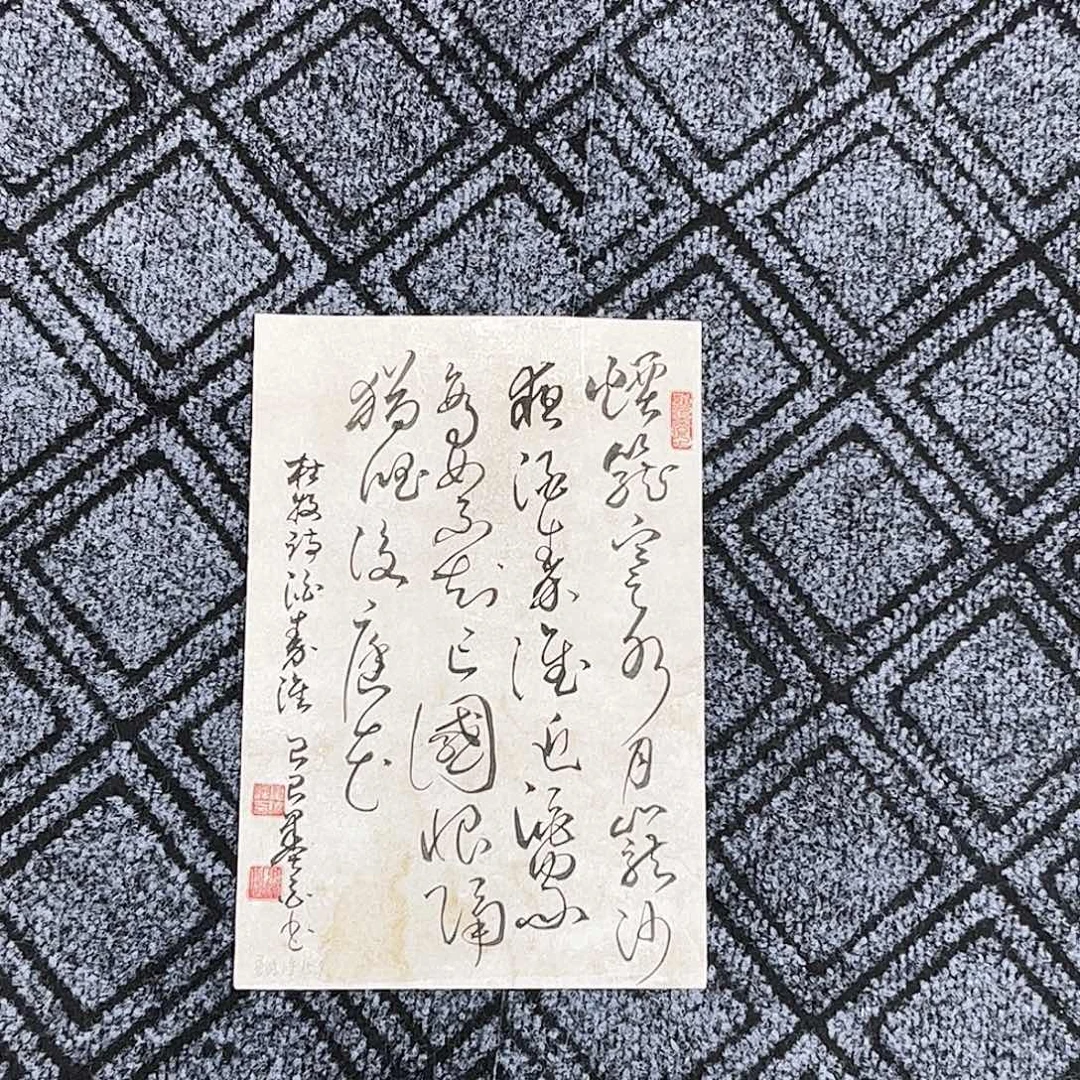 煙籠寒水月籠沙
夜泊秦淮近酒家
商女不知亡國恨隔
猶唱後庭花
杜牧詩泊秦淮 己巳書